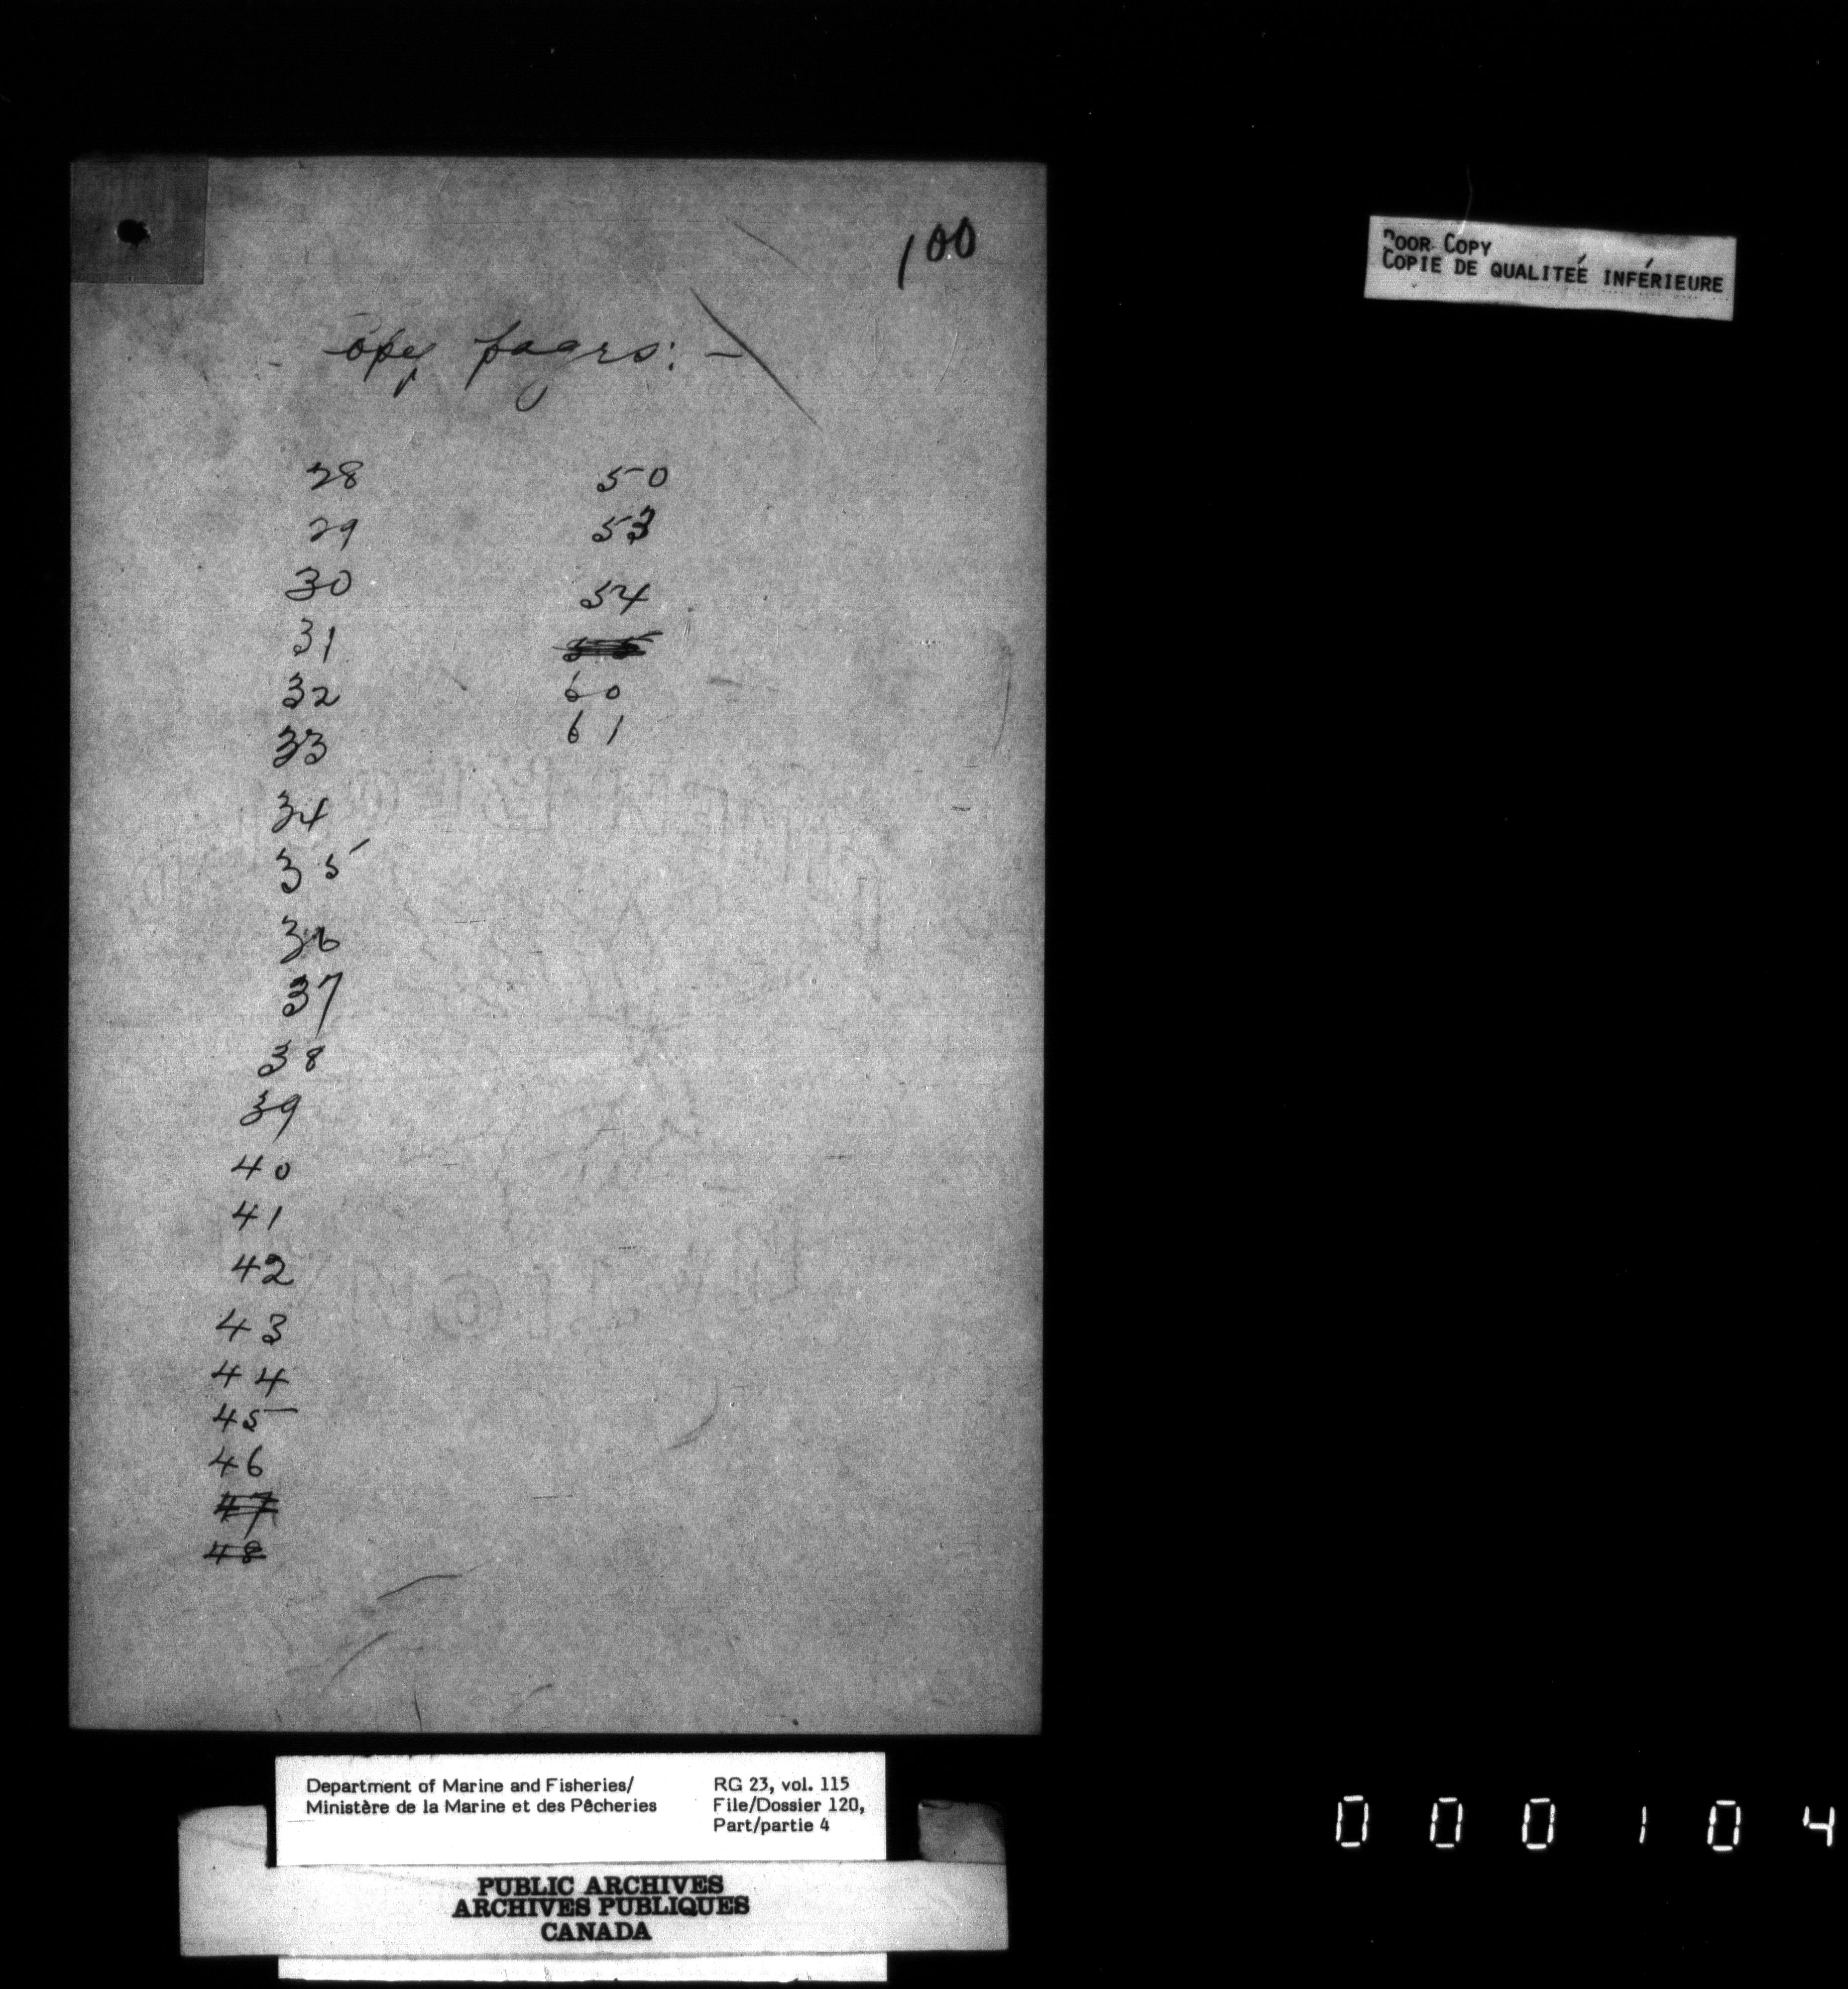 100
Copy pages: -
28
29
30
31
32
33
34
35
36
37
38
39
40
41
42
43
44
45
46
47
48
50
53
54
55
60
61
POOR COPY
COPIE DE QUALITEÉ INFÉRIEURE
Department of Marine and Fisheries/
Ministère de la Marine et des Pêcheries
RG 23, vol. 115
File/Dossier 120,
Part/partie 4
PUBLIC ARCHIVES
ARCHIVES PUBLIQUES
CANADA
000104